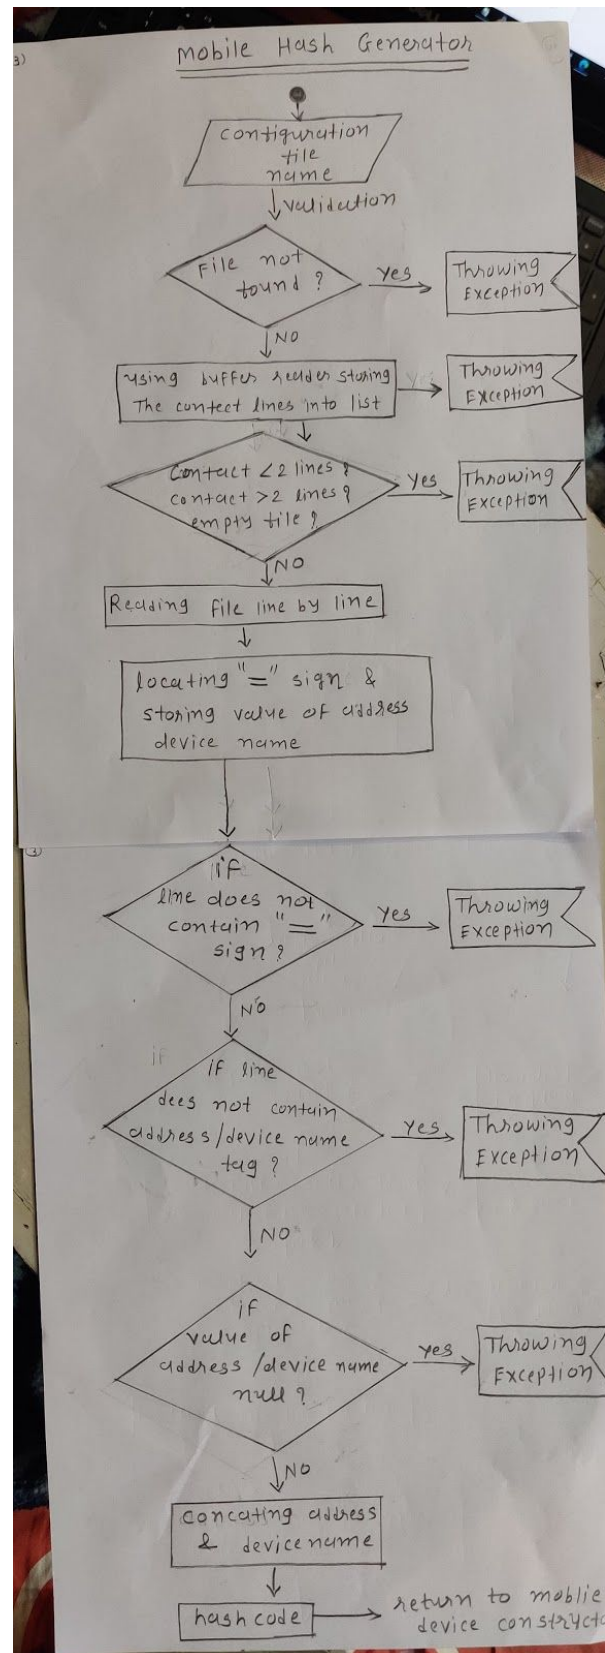 3)
Mobile Hash Generator
Configuration
file
name
validation
File not
found ?
Yes
Throwing
Exception
NO
using buffer reader storing
The contect lines into list
Yes
Throwing
Exception
Contact <2 lines ?
contact >2 lines ?
empty file ?
Yes
Throwing
Exception
NO
Reading file line by line
locating "=" sign &
storing value of address
device name
if
line does not
contain "="
sign ?
Yes
Throwing
Exception
NO
if
if line
dees not contain
address/device name
tag ?
Yes
Throwing
Exception
NO
if
value of
address/device name
null ?
Yes
Throwing
Exception
NO
concating address
& devicename
hashcode
return to moblie
device constructo